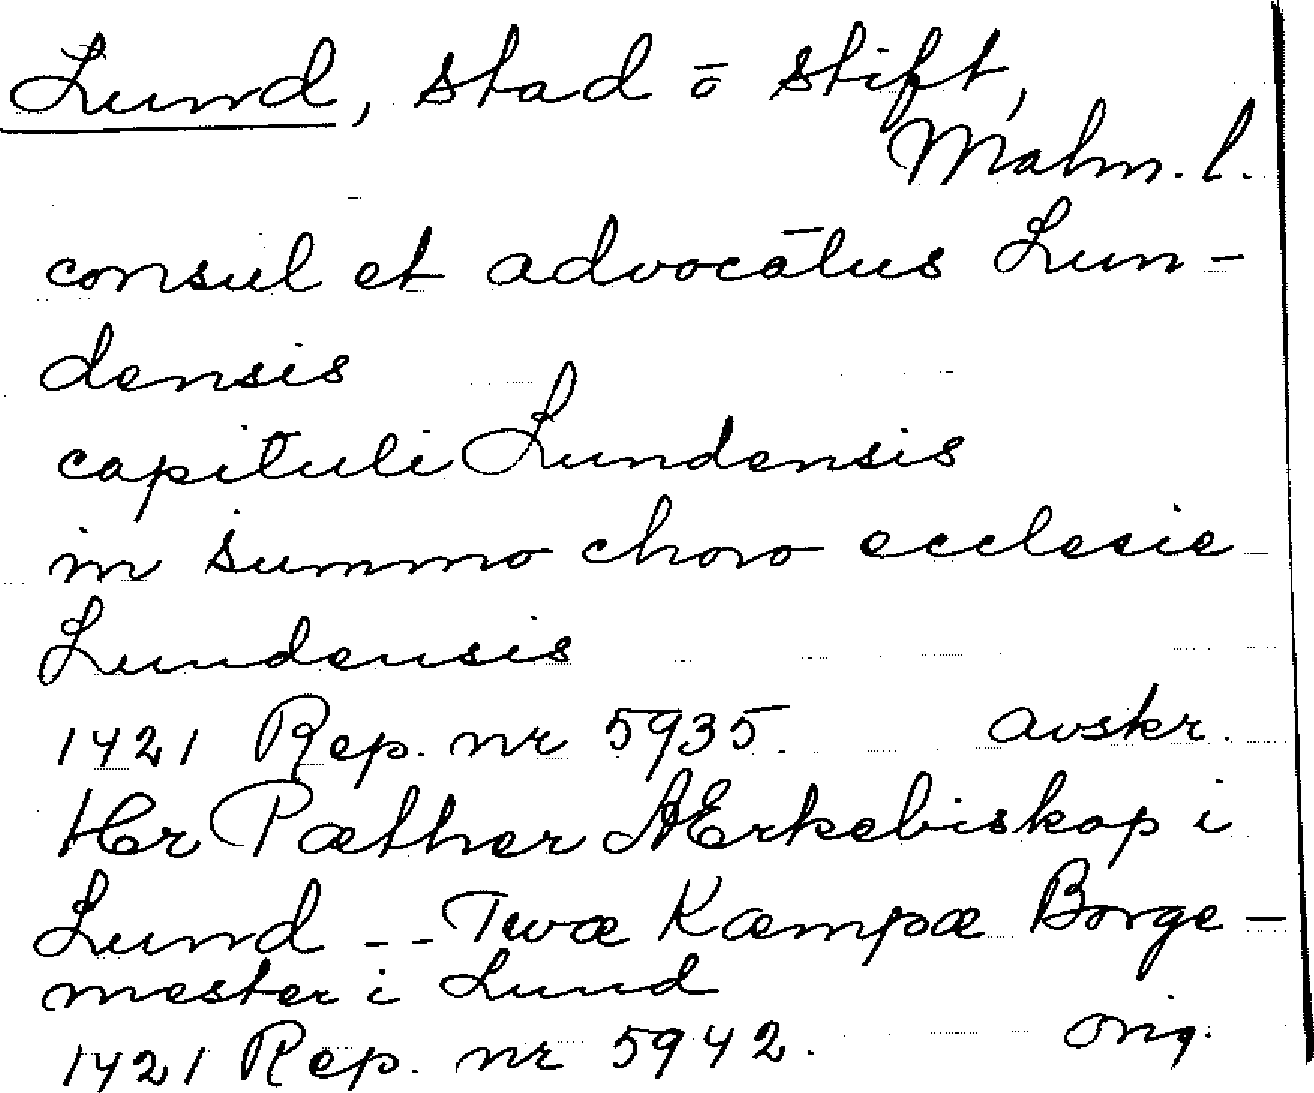 Lund, stad o stift,
Malm. l.
consul et advocatus Lun-
densis
capituli Lundensis
in summo choro ecclesie
Lundensis
1421 Rep. nr 5935. avskr.
Hr Pæther Ærkebiskop i
Lund -- Twæ Kæmpæ Borge-
mester i Lund
1421 Rep. nr 5942. orig.